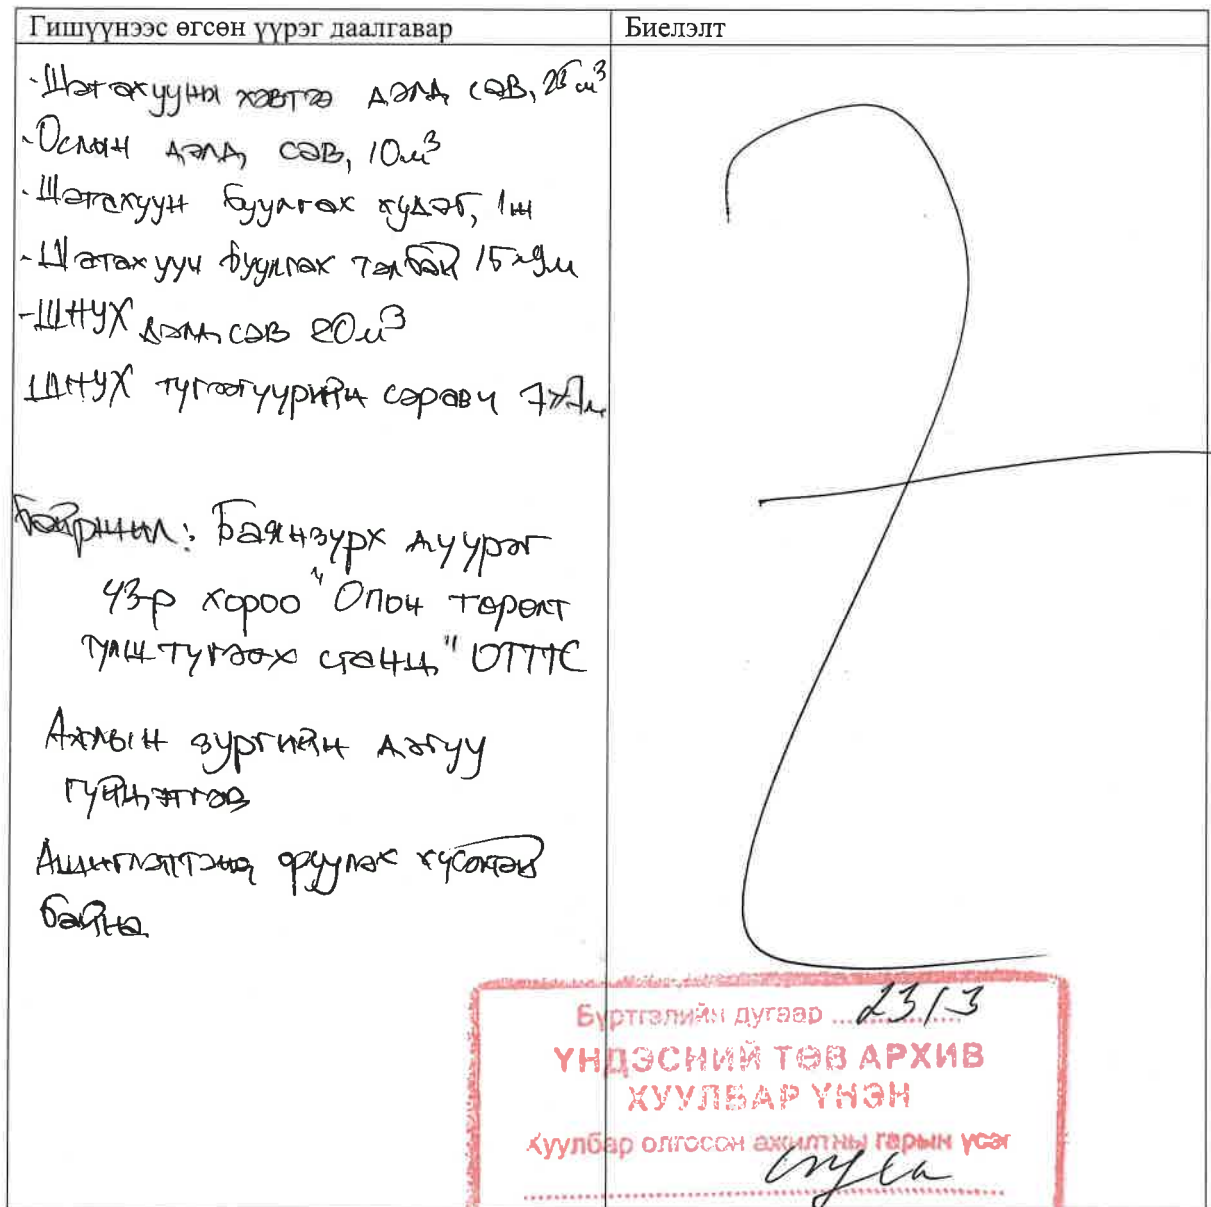 Гишүүнээс өгсөн үүрэг даалгавар
Биелэлт
-Шатахууны хэвтээ далд сав, 25м³
-Ослын далд сав, 10м³
-Шатахуун буулгах худаг, 1ш
-Шатахуун буулгах талбай 15х9м
-ШНУХ далд сав 20м³
ШНУХ түгээгүүрийн саравч 7х7м
Байршил: Баянзүрх дүүрэг
43-р хороо "Олон төрөлт
түлш түгээх станц" ОТТТС
Ажлын зургийн дагуу
гүйцэтгэв
Ашиглалтанд оруулах хүсэлтэй
байна
Бүртгэлийн дугаар ...23/3
ҮНДЭСНИЙ ТӨВ АРХИВ
ХУУЛБАР ҮНЭН
Хуулбар олгосон ажилтны гарын үсэг